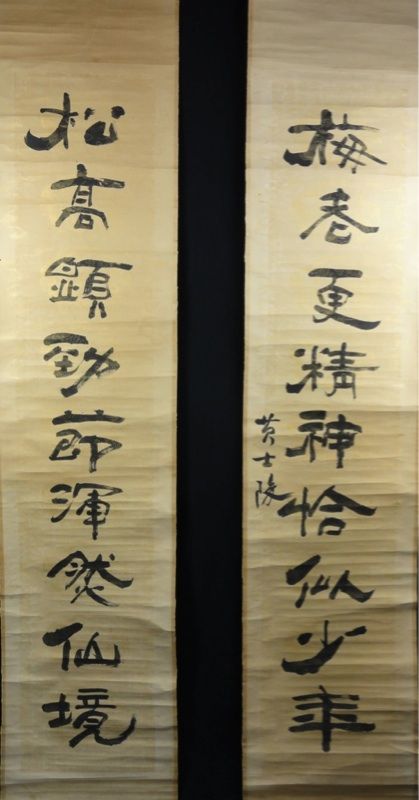 梅老更精神恰似少年
黄士陵
松高顕勁節渾然仙境